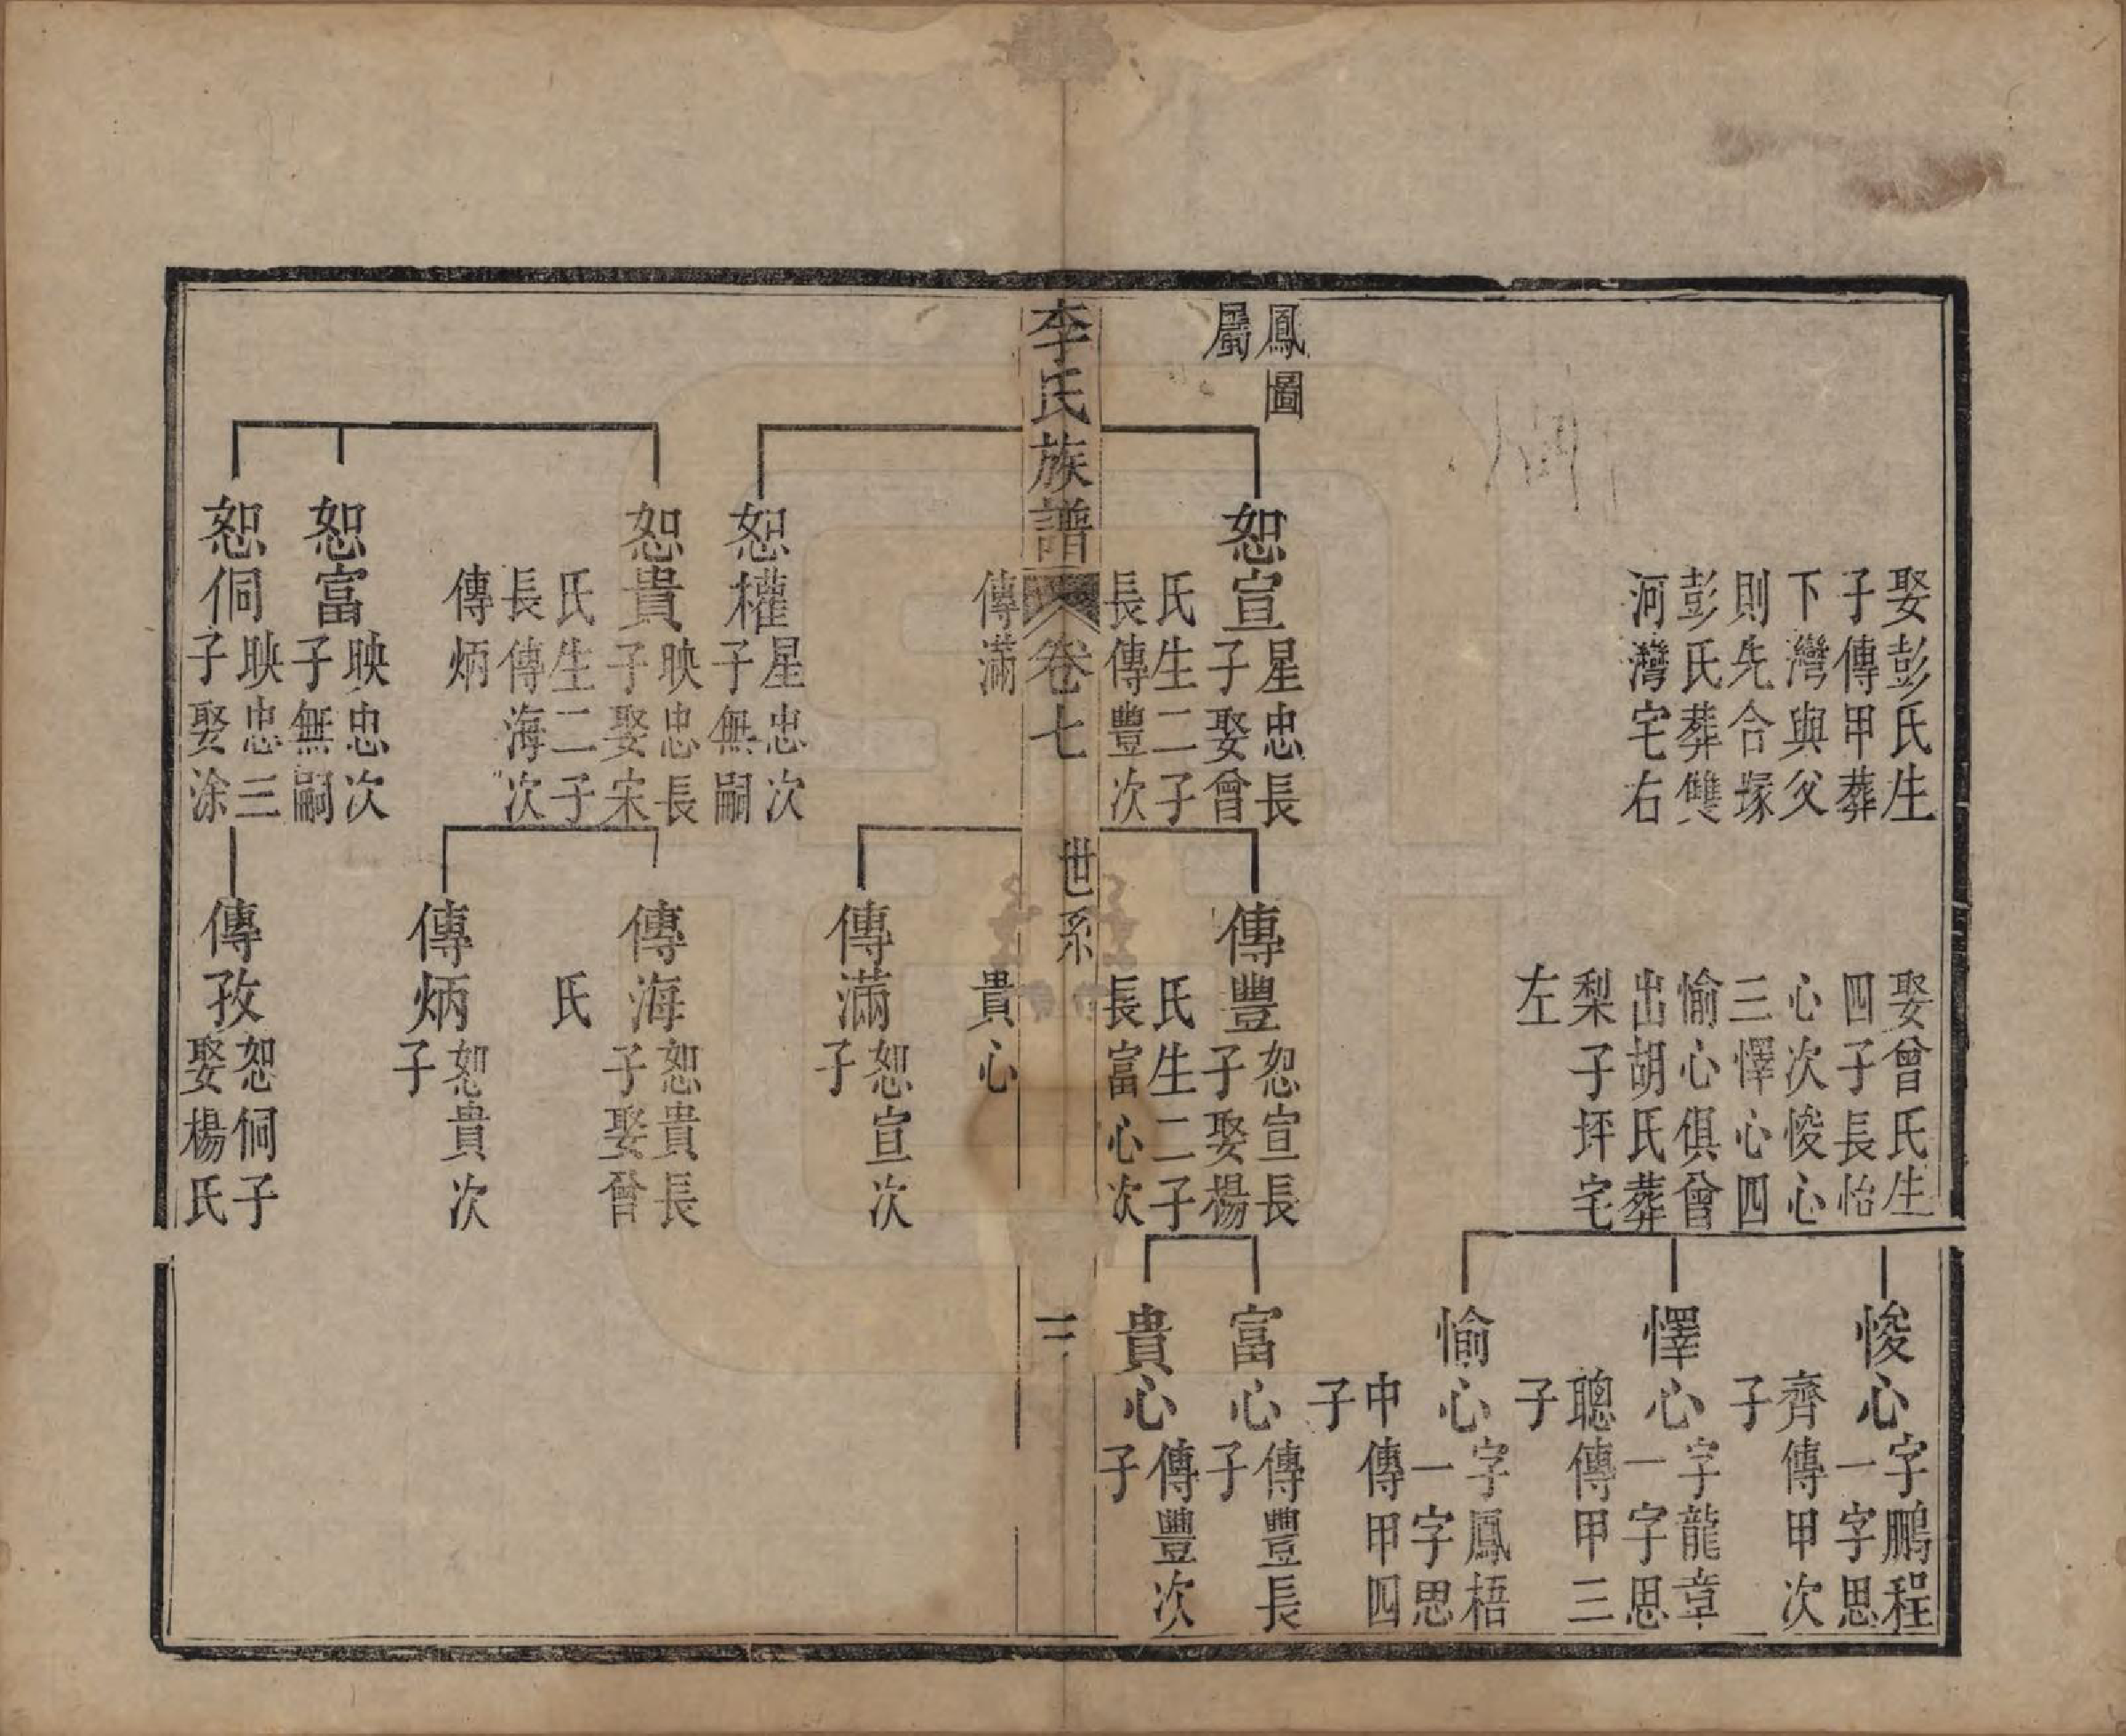 鳳圖
屬
娶彭氏生
子傳甲葬
下灣與父
則先合塚
彭氏葬雙
河灣宅右
恕宣
星忠長
子娶曾
氏生二子
長傳豐次
傳滿
恕權
星忠次
子無嗣
恕貴
映忠長
子娶宋
氏生二子
長傳海次
傳炳
恕富
映忠次
子無嗣
恕侗
映忠三
子娶涂
娶曾氏生
四子長怡
心次悛心
三懌心四
愉心俱曾
出胡氏葬
梨子坪宅
左
傳豐
恕宣長
子娶楊
氏生二子
長富心次
貴心
傳滿
恕宣次
子
傳海
恕貴長
子娶曾
氏
傳炳
恕貴次
子
傳孜
恕侗子
娶楊氏
悛心
字鵬程
一字思
齊傳甲次
子
懌心
字龍章
一字思
聰傳甲三
子
愉心
字鳳梧
一字思
中傳甲四
子
富心
傳豐長
子
貴心
傳豐次
子
李氏族譜
卷七
世系
三